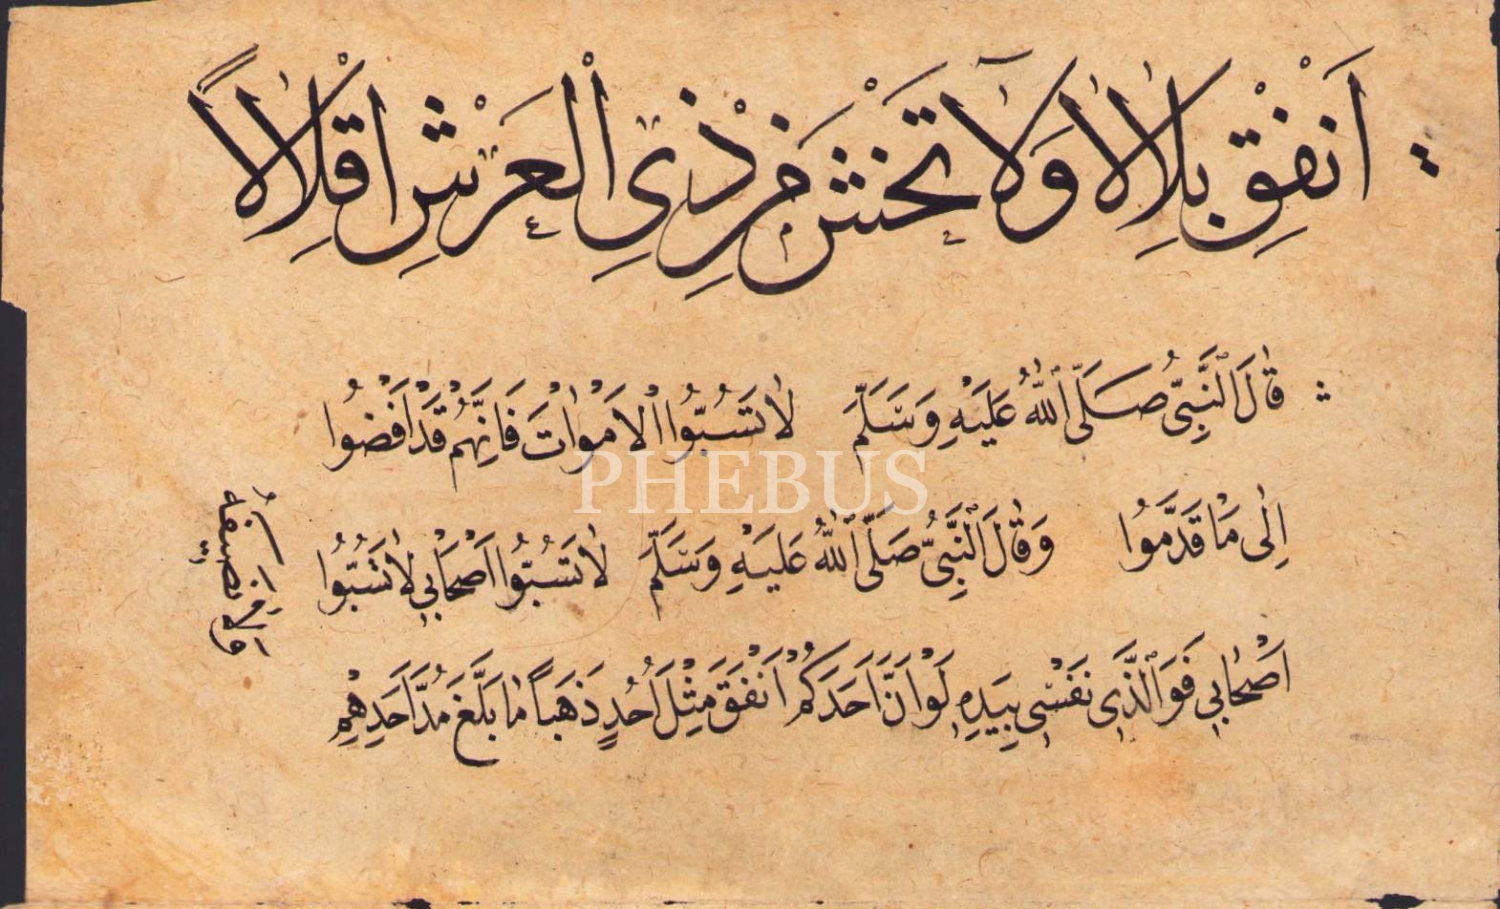 اَنْفِقْ بِلَالاً وَلَا تَخْشَ مِنْ ذِي الْعَرْشِ اِقْلَالاً
قَالَ النَّبِيُّ صَلَّى اللّٰهُ عَلَيْهِ وَسَلَّمَ لَا تَسُبُّوا الْاَمْوَاتَ فَاِنَّهُمْ قَدْ اَفْضُوا
اِلٰى مَا قَدَّمُوا وَقَالَ النَّبِيُّ صَلَّى اللّٰهُ عَلَيْهِ وَسَلَّمَ لَا تَسُبُّوا اَصْحَابِي لَا تَسُبُّوا
اَصْحَابِي فَوَالَّذِي نَفْسِي بِيَدِهِ لَوْ اَنَّ اَحَدَكُمْ اَنْفَقَ مِثْلَ اُحُدٍ ذَهَباً مَا بَلَغَ مُدَّ اَحَدِهِمْ
وَلَا نَصِيفَهُ
PHEBUS